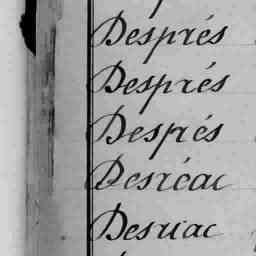 Després
Després
Després
Desréac
Desriac